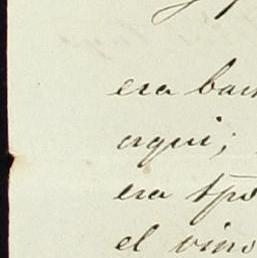 era bas
aqui;
era tpo
el vino